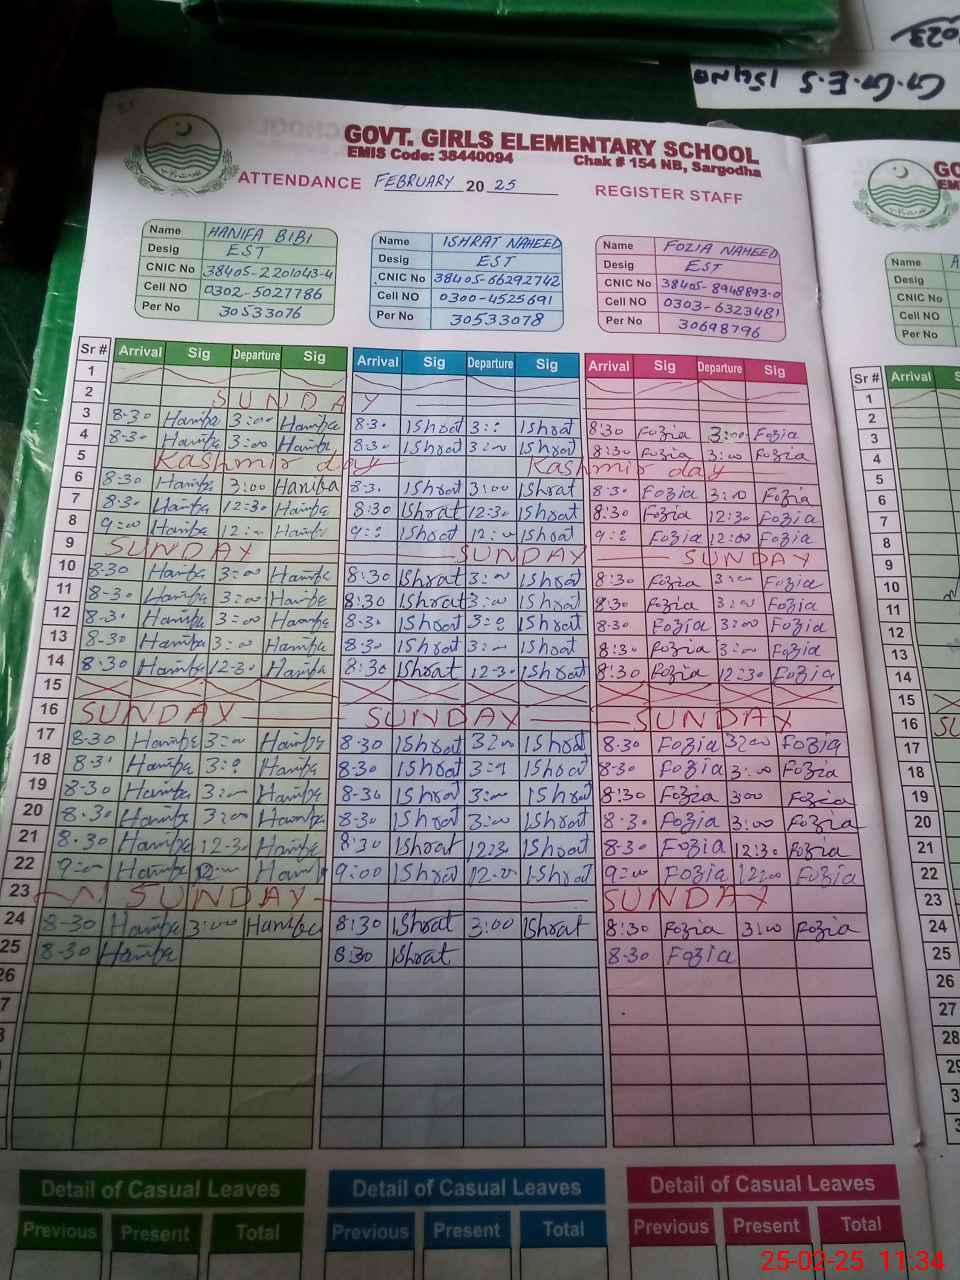 2023
G.G.E.S 154NB
GOVT. GIRLS ELEMENTARY SCHOOL
EMIS Code: 38440094 Chak # 154 NB, Sargodha
ATTENDANCE FEBRUARY 2025 REGISTER STAFF
Name HANIFA BIBI Name ISHRAT NAHEED Name FOZIA NAHEED
Desig EST Desig EST Desig EST
CNIC No 38405-2201043-4 CNIC No 38405-66292742 CNIC No 38405-8948893-0
Cell NO 0302-5027786 Cell NO 0300-4525691 Cell NO 0303-6323481
Per No 30533076 Per No 30533078 Per No 30698796
Sr # Arrival Sig Departure Sig Arrival Sig Departure Sig Arrival Sig Departure Sig
1
2 SUNDAY
3 8-30 Hanifa 3:00 Hanifa 8:30 IShrat 3:00 IShrat 8:30 Fozia 3:00 Fozia
4 8-30 Hanifa 3:00 Hanifa 8:30 IShrat 3:00 IShrat 8:30 Fozia 3:00 Fozia
5 Kashmir day Kashmir day
6 8:30 Hanifa 3:00 Hanifa 8:30 IShrat 3:00 IShrat 8:30 Fozia 3:00 Fozia
7 8:30 Hanifa 12:30 Hanifa 8:30 IShrat 12:30 IShrat 8:30 Fozia 12:30 Fozia
8 9:00 Hanifa 12:00 Hanifa 9:00 IShrat 12:00 IShrat 9:00 Fozia 12:00 Fozia
9 SUNDAY SUNDAY SUNDAY
10 8:30 Hanifa 3:00 Hanifa 8:30 IShrat 3:00 IShrat 8:30 Fozia 3:00 Fozia
11 8-30 Hanifa 3:00 Hanifa 8:30 IShrat 3:00 IShrat 8:30 Fozia 3:00 Fozia
12 8-30 Hanifa 3:00 Hanifa 8:30 IShrat 3:00 IShrat 8:30 Fozia 3:00 Fozia
13 8-30 Hanifa 3:00 Hanifa 8:30 IShrat 3:00 IShrat 8:30 Fozia 3:00 Fozia
14 8:30 Hanifa 12-30 Hanifa 8:30 IShrat 12-30 IShrat 8:30 Fozia 12:30 Fozia
15
16 SUNDAY SUNDAY SUNDAY
17 8-30 Hanifa 3:00 Hanifa 8-30 IShrat 3:00 IShrat 8-30 Fozia 3:00 Fozia
18 8-30 Hanifa 3:00 Hanifa 8-30 IShrat 3:00 IShrat 8-30 Fozia 3:00 Fozia
19 8-30 Hanifa 3:00 Hanifa 8-30 IShrat 3:00 IShrat 8:30 Fozia 3:00 Fozia
20 8-30 Hanifa 3:00 Hanifa 8-30 IShrat 3:00 IShrat 8-30 Fozia 3:00 Fozia
21 8-30 Hanifa 12-30 Hanifa 8:30 IShrat 12:30 IShrat 8-30 Fozia 12:30 Fozia
22 9:00 Hanifa 12:00 Hanifa 9:00 IShrat 12:00 IShrat 9:00 Fozia 12:00 Fozia
23 SUNDAY SUNDAY
24 8-30 Hanifa 3:00 Hanifa 8:30 IShrat 3:00 IShrat 8:30 Fozia 3:00 Fozia
25 8-30 Hanifa 8:30 IShrat 8-30 Fozia
26
7
Detail of Casual Leaves Detail of Casual Leaves Detail of Casual Leaves
Previous Present Total Previous Present Total Previous Present Total
GO
EM
Name A
Desig
CNIC No
Cell NO
Per No
Sr # Arrival S
1
2
3
4
5
6
7
8
9
10
11
12
13
14
15
16 SU
17
18
19
20
21
22
23
24
25
26
27
28
29
3
3
25-02-25 11:34